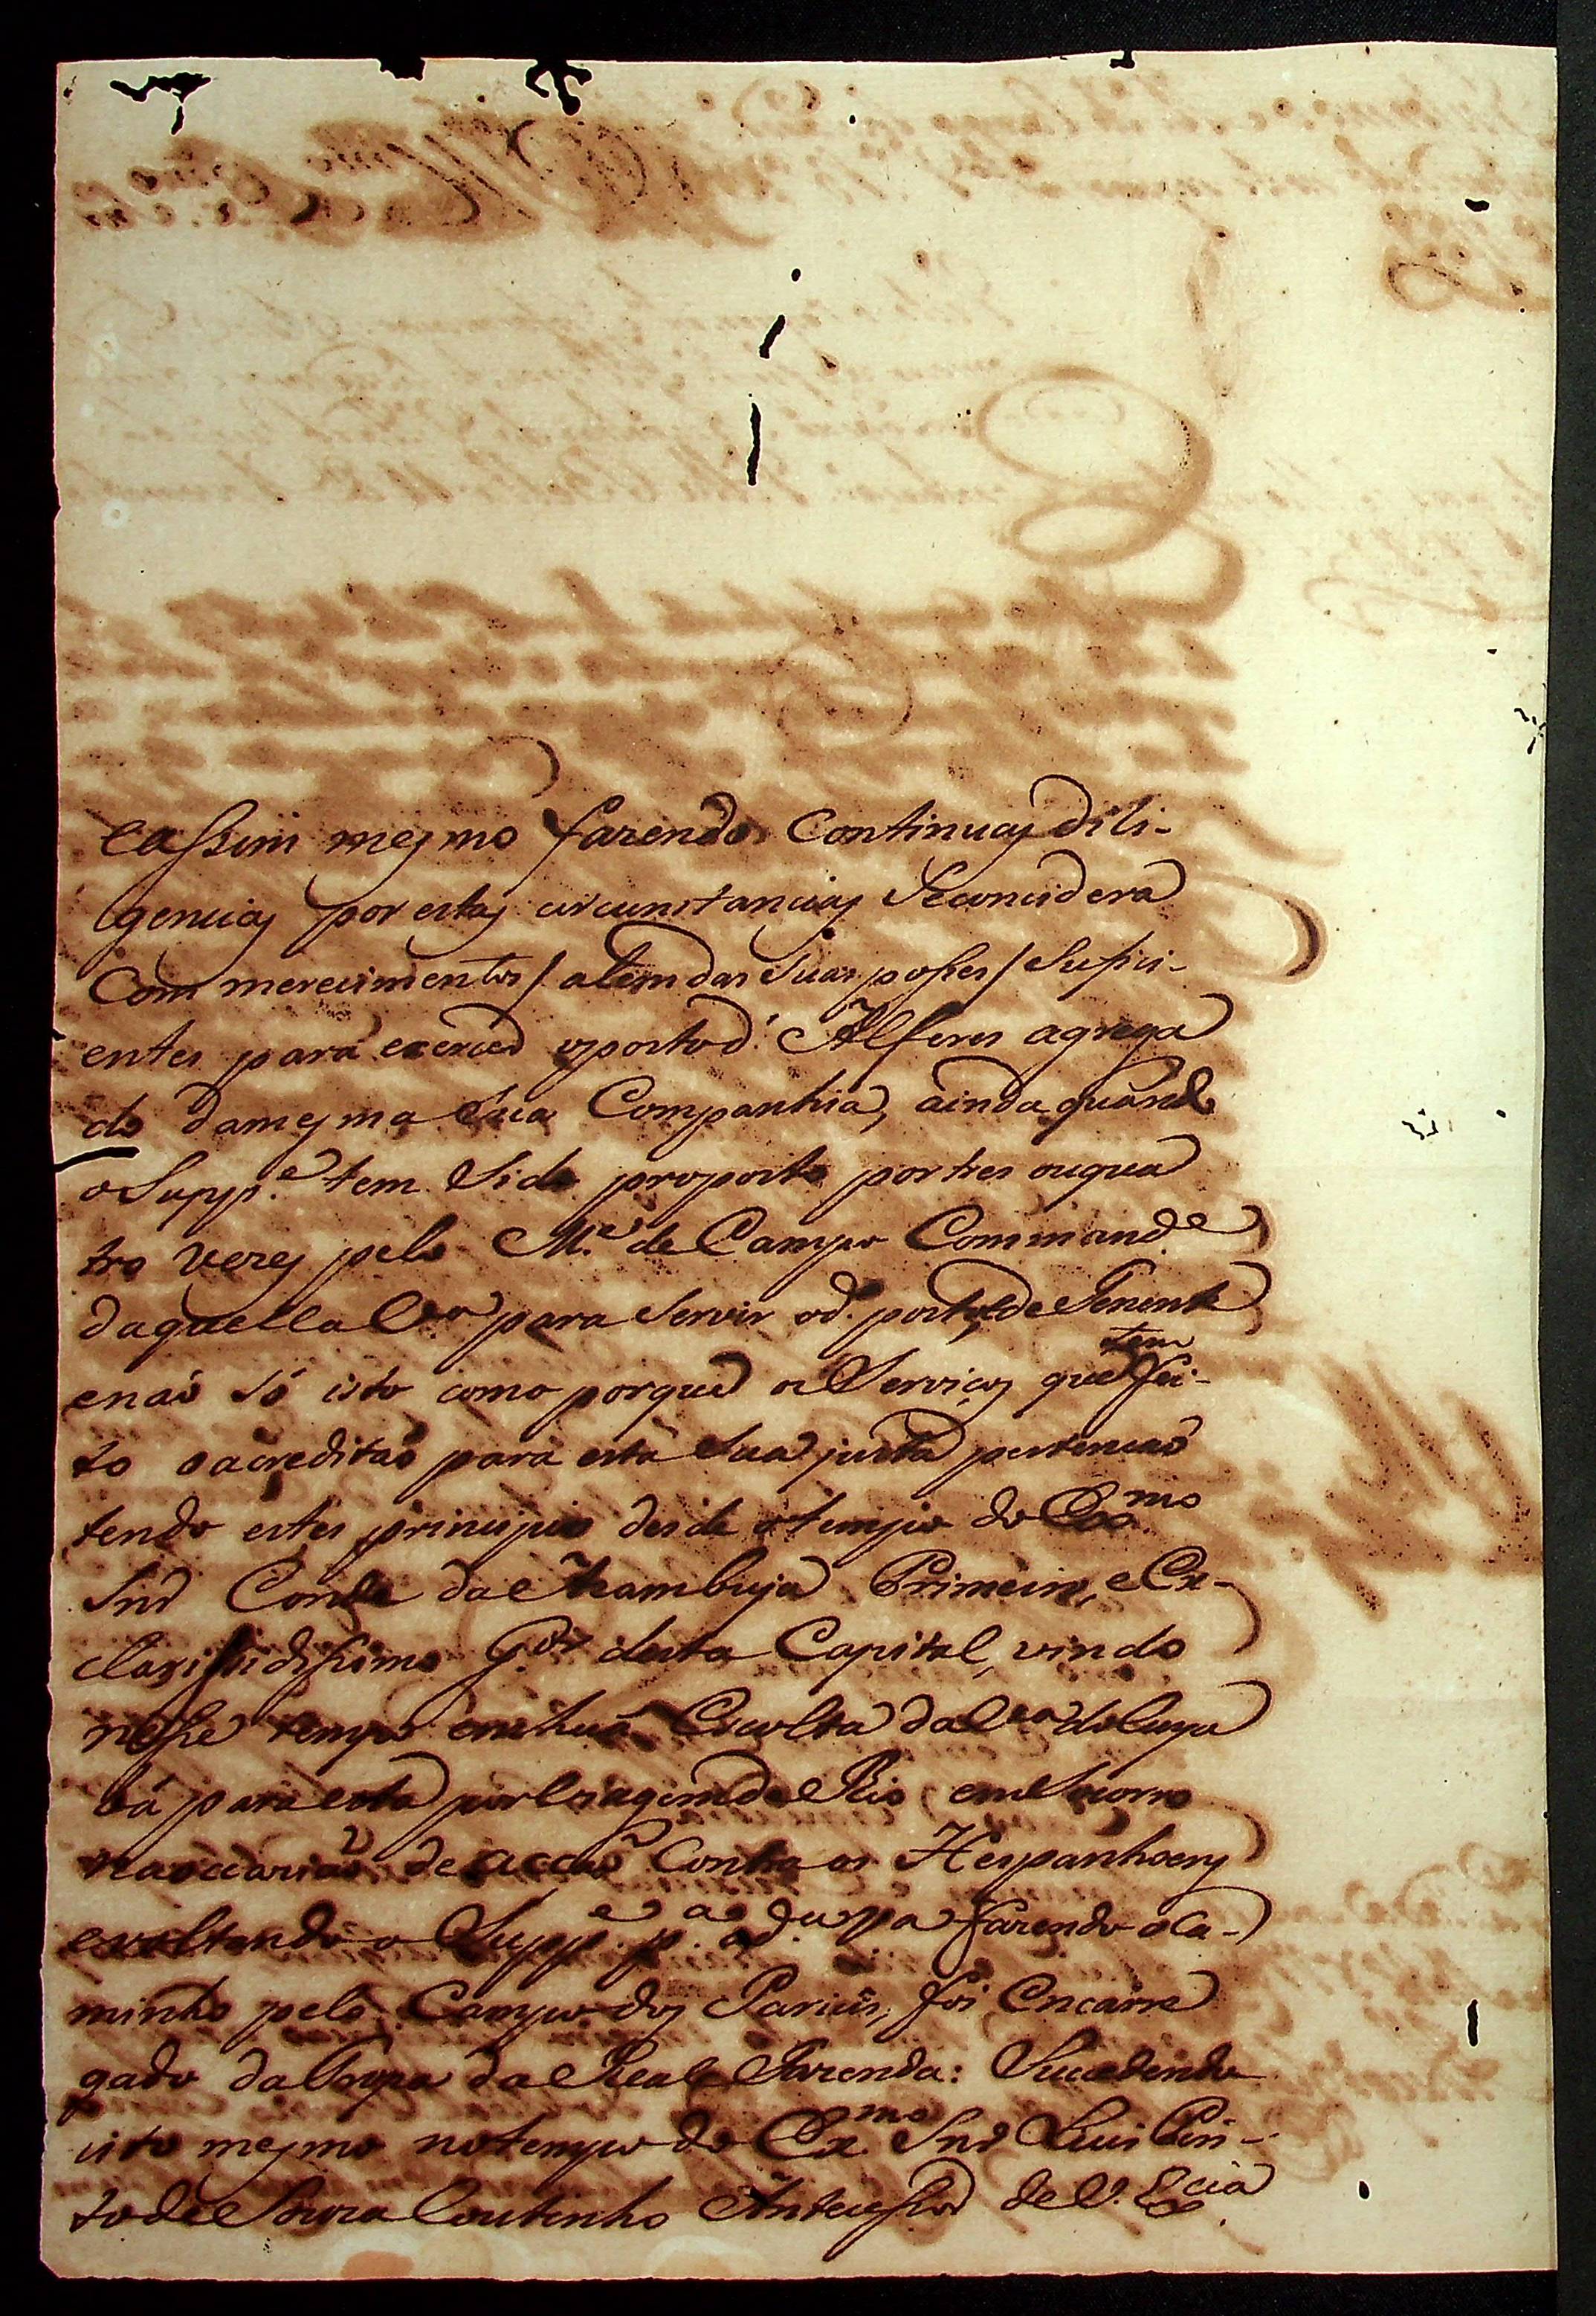 eassim mesmo fazendo Continuas dili-
gencias por estas circunstancias Seconsidera
Com merecimentos / alem das Suas poses / Sufici-
entes para exercer oposto d'. Alferes agrega
do damesma Sua Companhia, ainda quando
o Supp.e tem Sido proposto por tres ouqua
tro vezes pelo M.e de Campo Command.e
daquella para Servir od. posto de Tenente
enaõ só isto como porque os Serviços que tem fei-
to oacreditaõ para esta Sua justa pertençaõ
tendo estes principio desde otempo do Ex.mo
Snr Conde da Azambuja Primeiro, e Ex-
G.or desta Capital, vindo
nesse tempo em huã Escolta da do Cuya
bá para esta por Viagem do Rio, em Socorro
de acçaõ Contra os Hespanhoes
evoltando o Supp.e p.a ad. fazendo oCa-
minho pelo Campo dos Paricis, foi Encarre
gado da Tropa da Real Fazenda: Sucedendo
isto mesmo notempo do Ex.mo Snr Luis Pin-
to de Souza Coutinho Antecessor de V. Ex.cia